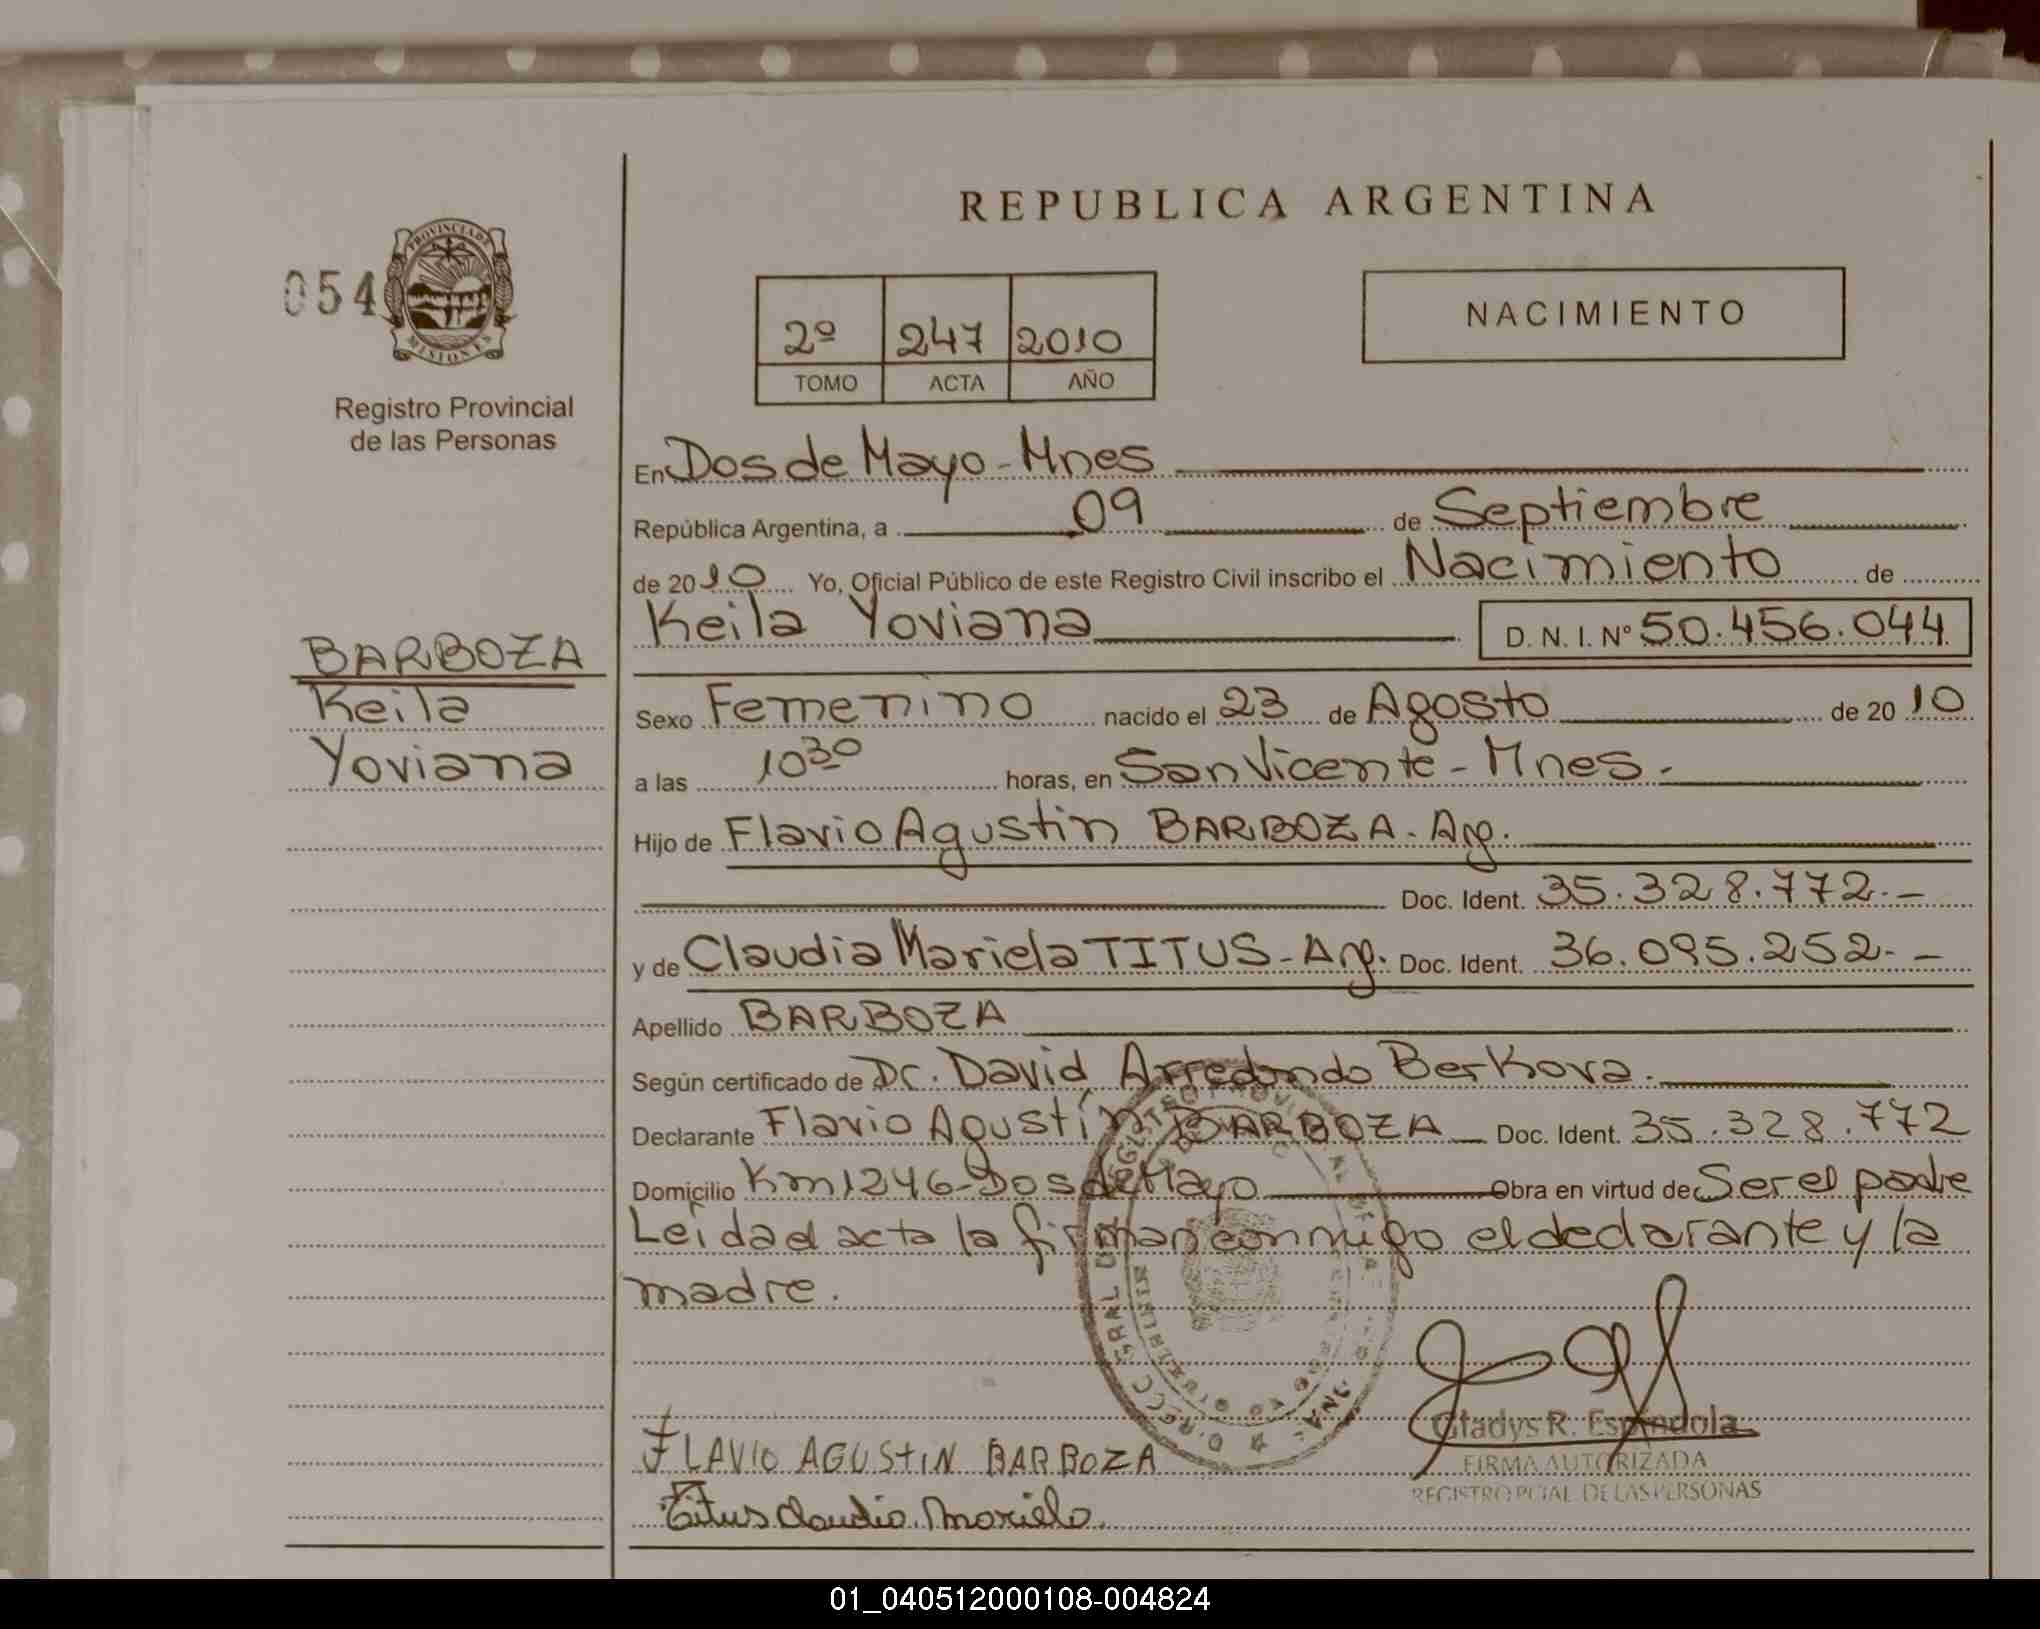 REPUBLICA ARGENTINA
054
PROVINCIA DE
MISIONES
Registro Provincial
de las Personas
2º 247 2010
TOMO ACTA AÑO
NACIMIENTO
En Dos de Mayo - Mnes
República Argentina, a 09 de Septiembre
de 2010 Yo, Oficial Público de este Registro Civil inscribo el Nacimiento de
Keila Yoviana D. N. I. Nº 50.456.044
BARBOZA
Keila
Yoviana
Sexo Femenino nacido el 23 de Agosto de 2010
a las 10 30 horas, en San Vicente - Mnes.
Hijo de Flavio Agustin BARBOZA. Arg.
Doc. Ident. 35.328.772.-
y de Claudia Mariela TITUS - Arg. Doc. Ident. 36.095.252.-
Apellido BARBOZA
Según certificado de Dr. David Arredondo Berkova.
Declarante Flavio Agustín BARBOZA Doc. Ident. 35.328.772
Domicilio Km 1246 - Dos de Mayo Obra en virtud de Ser el padre
Leída el acta la firman conmigo el declarante y la
madre.
Gladys R. Espindola
FIRMA AUTORIZADA
REGISTRO PCIAL. DE LAS PERSONAS
FLAVIO AGUSTIN BARBOZA
Titus Claudia Mariela.
01_040512000108-004824